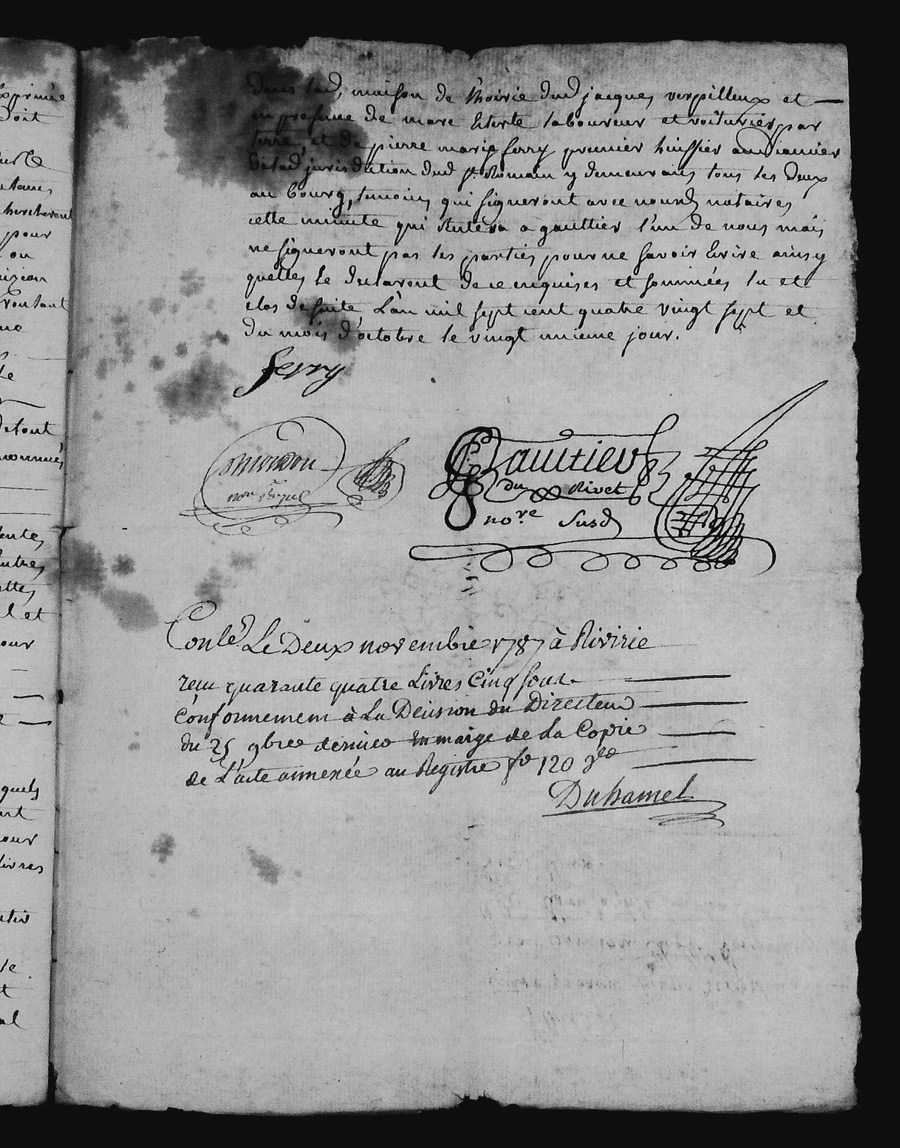 dans lad. maison de hoirie dud jacques verpilleux et
en presence de marc laboureur et voiturier par
terre, et de pierre marie ferry premier huissier audiancier
de lad jurisdiction dud st. Romain y demeurants tous les deux
au bourg, temoins qui signeront avec nousd notaires
cette minute qui restera a gaultier l'un de nous mais
ne signeront pas les parties pour ne savoir Ecrire ainsy
quelles le declarent de ce enquises et sommées lu et
clos de suite L'an mil sept cent quatre vingt sept et
du mois d'octobre le vingt unieme jour.
ferry
nore
Gaultier
du Rivet
nore susd
Conlé Le Deux novembre 1787 à Riverie
recu quarante quatre Livres Cinq sous
conformement à La Decision du Directeur
du 25 9bre dernier en marge de la Copie
de L'acte annexée au Registre fo 120
Duhamel
xprimée
doit
hercherent
pour
ou
voulant
Le
detout
nommés
l et
our
quels
our
livres